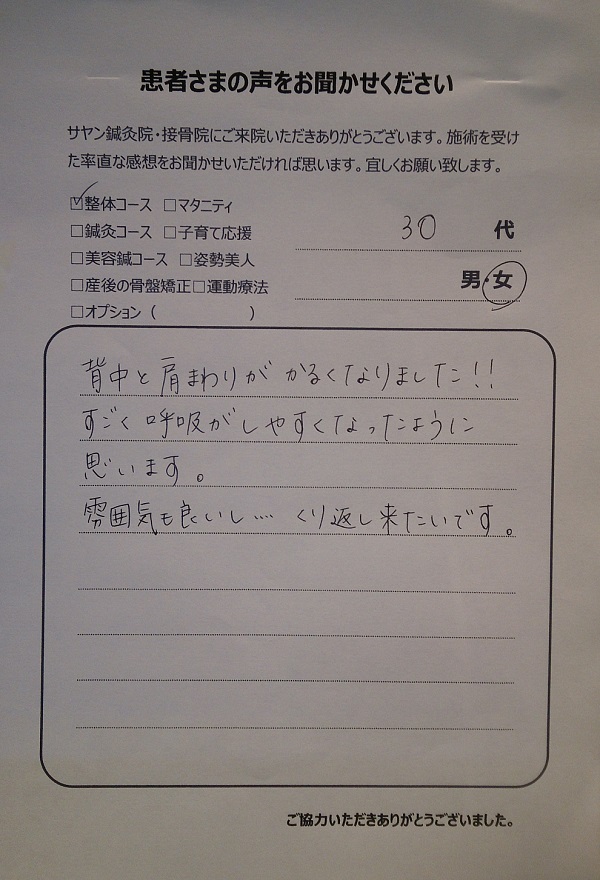 患者さまの声をお聞かせください
サヤン鍼灸院・接骨院にご来院いただきありがとうございます。施術を受け
た率直な感想をお聞かせいただければ思います。宜しくお願い致します。
☑整体コース □マタニティ
□鍼灸コース □子育て応援
30 代
□美容鍼コース □姿勢美人
男・女
□産後の骨盤矯正□運動療法
□オプション（　　　　　）
背中と肩まわりがかるくなりました!!
すごく呼吸がしやすくなったように
思います。
雰囲気も良いし…. くり返し来たいです。
ご協力いただきありがとうございました。